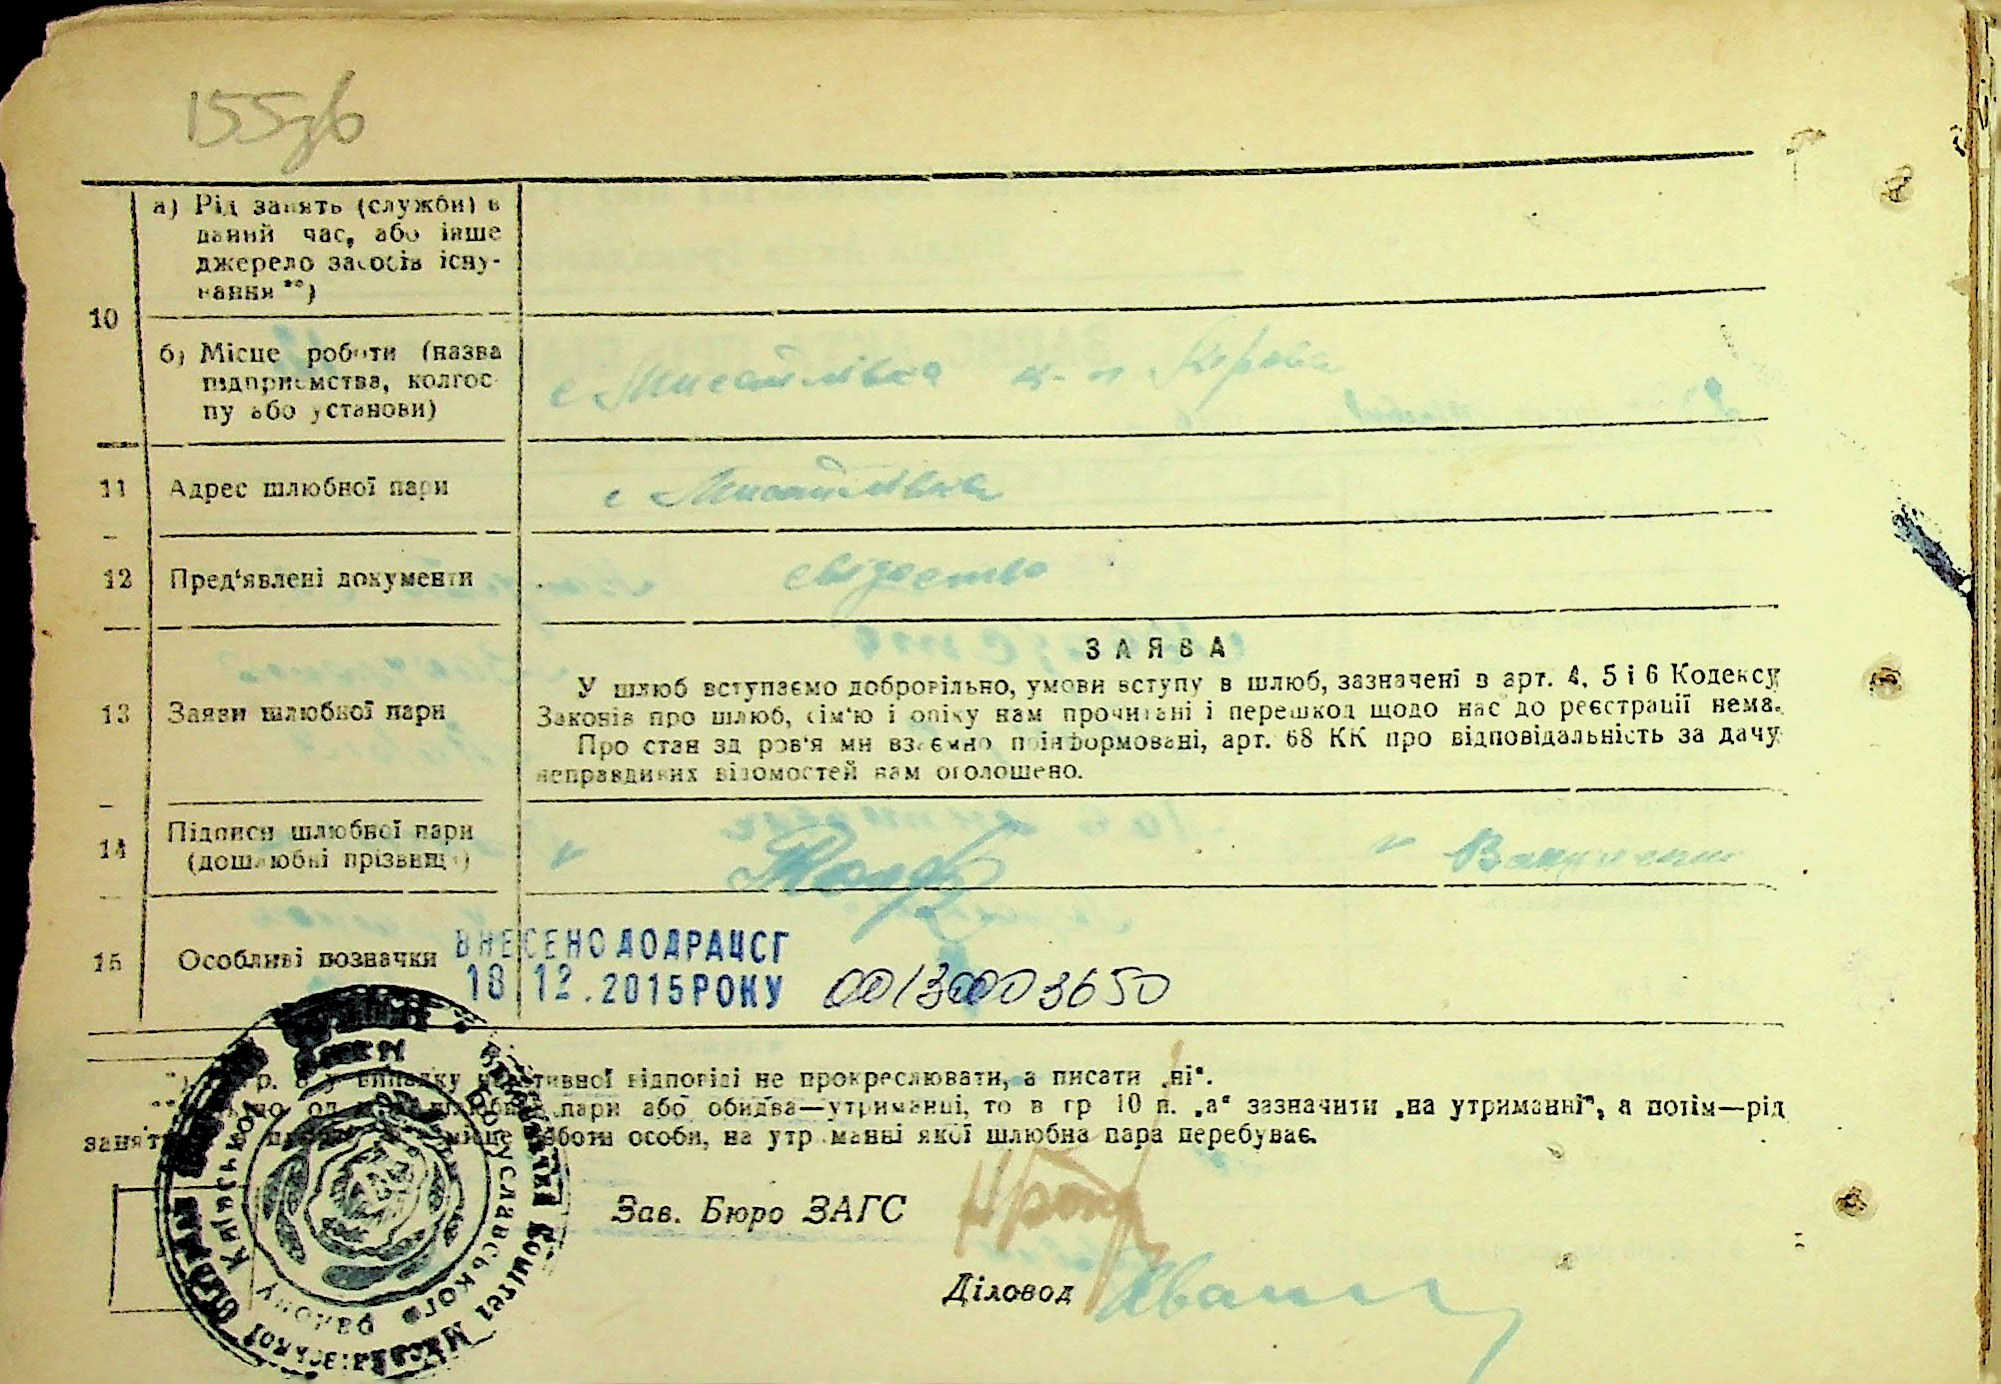 155зв
10
а) Рід занять (служби) в
даний час, або інше
джерело засобів існу-
вання **)
б) Місце роботи (назва
підприємства, колгос-
пу або установи)
с Мисайлівка к-п Кірова
11 Адрес шлюбної пари
с Мисайлівка
12 Пред'явлені документи
свідоство
ЗАЯВА
13 Заяви шлюбної пари
У шлюб вступаємо добровільно, умови вступу в шлюб, зазначені в арт. 4, 5 і 6 Кодексу
Законів про шлюб, сім'ю і опіку нам прочитані і перешкод щодо нас до реєстрації нема.
Про стан здоров'я ми взаємно поінформовані, арт. 68 КК про відповідальність за дачу
неправдивих відомостей нам оголошено.
14 Підписи шлюбної пари
(дошлюбні прізвища)
15 Особливі позначки
ВНЕСЕНО ДО ДРАЦСГ
18.12.2015 РОКУ 00130003650
у випадку негативної відповіді не прокреслювати, а писати „ні“.
пари або обидва—утриманці, то в гр 10 п. „а“ зазначити „на утриманні“, а потім—рід
місце роботи особи, на утриманні якої шлюбна пара перебуває.
Зав. Бюро ЗАГС
Діловод
Богуславського району Київської